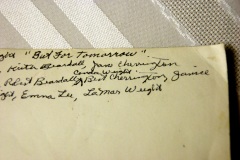 "But For Tomorrow"
Keith Beardall, Jane Cherrington
Wright
Beardall, Bert Cherrington, Janice
Emma Lu, LaMar Wright